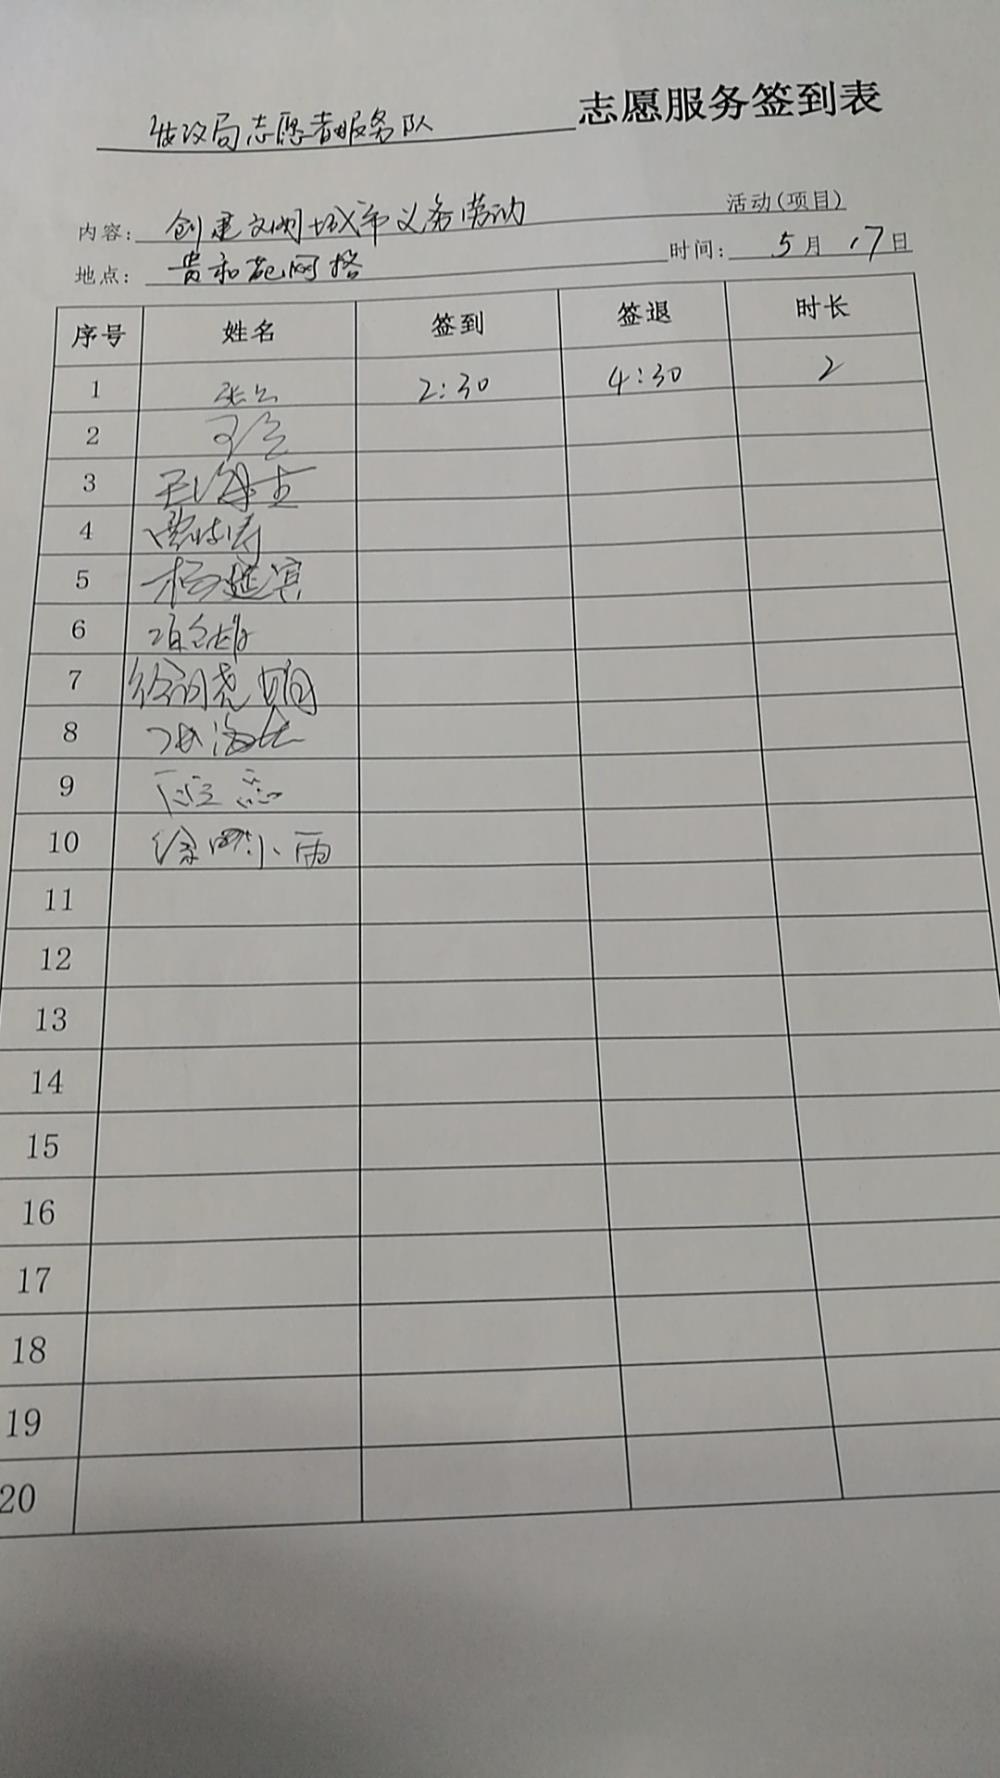 发改局志愿者服务队 志愿服务签到表
内容: 创建文明城市义务劳动 活动(项目)
地点: 贵和苑网格 时间: 5月17日
序号 姓名 签到 签退 时长
1 2:30 4:30 2
2
3
4
5 杨延滨
6
7
8
9
10 徐 小雨
11
12
13
14
15
16
17
18
19
20